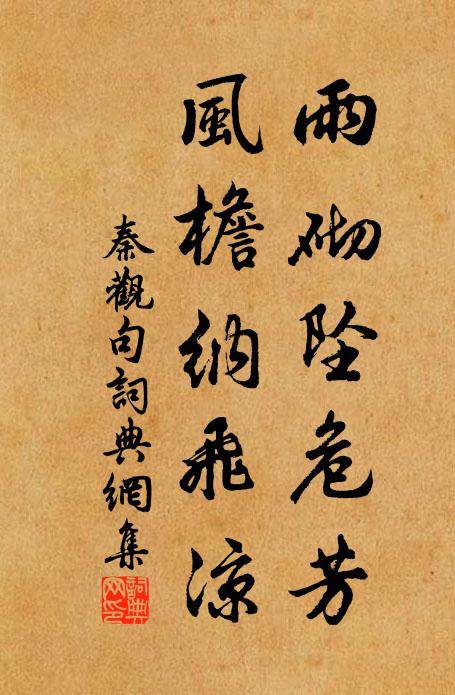 雨砌坠危芳
風檐納飛凉
秦觀句詞典網集
詞典网印